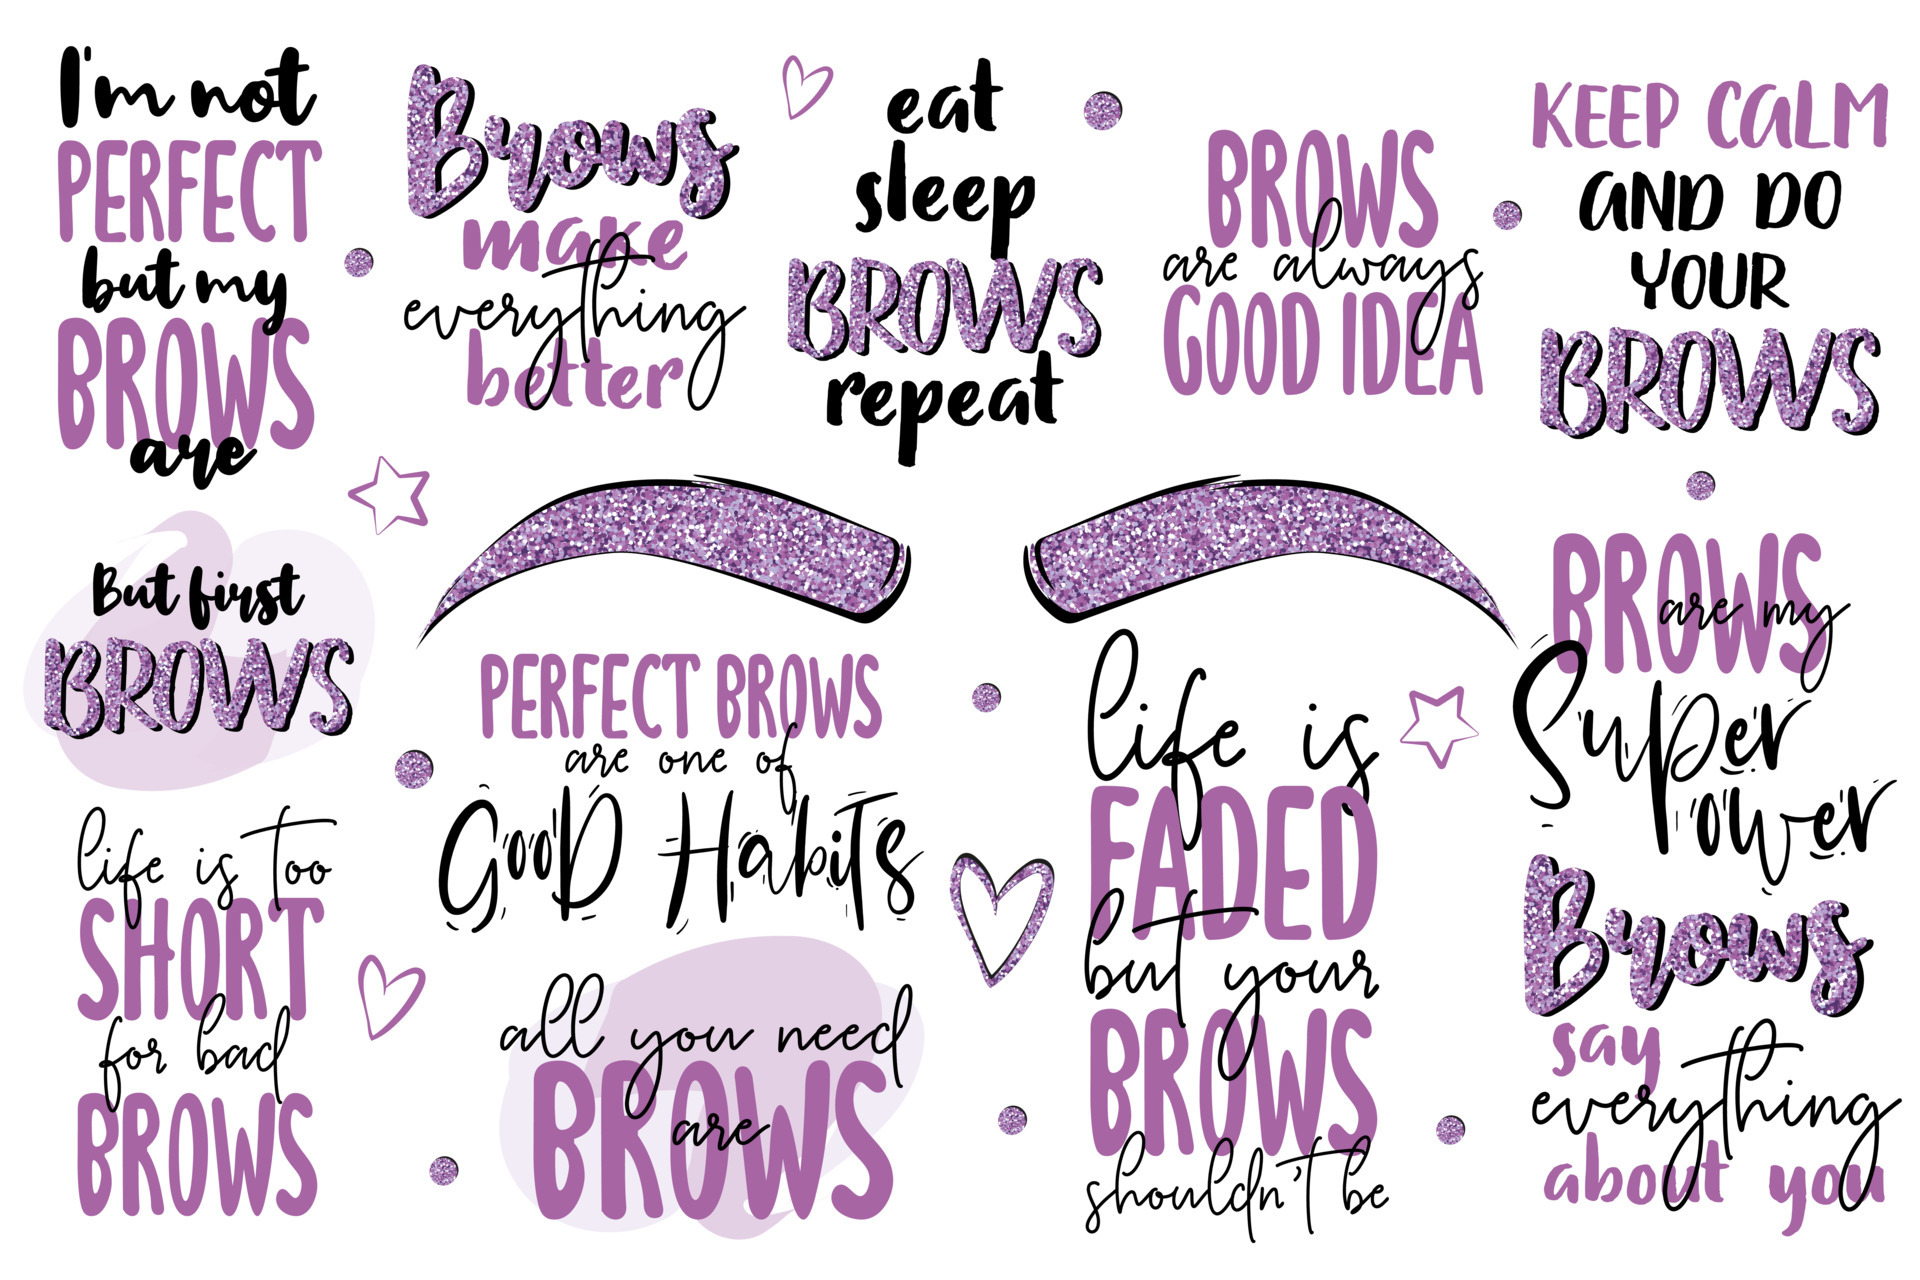 I'm not
PERFECT
but my
BROWS
are
Brows
make
everything
better
eat
sleep
BROWS
repeat
BROWS
are always
GOOD IDEA
KEEP CALM
AND DO
YOUR
BROWS
But first
BROWS
PERFECT BROWS
are one of
GooD HabiTs
life is
FADED
but your
BROWS
shouldn't be
BROWS
are my
Super
Power
life is too
SHORT
for bad
BROWS
all you need
BROWS
are
Brows
say
everything
about you